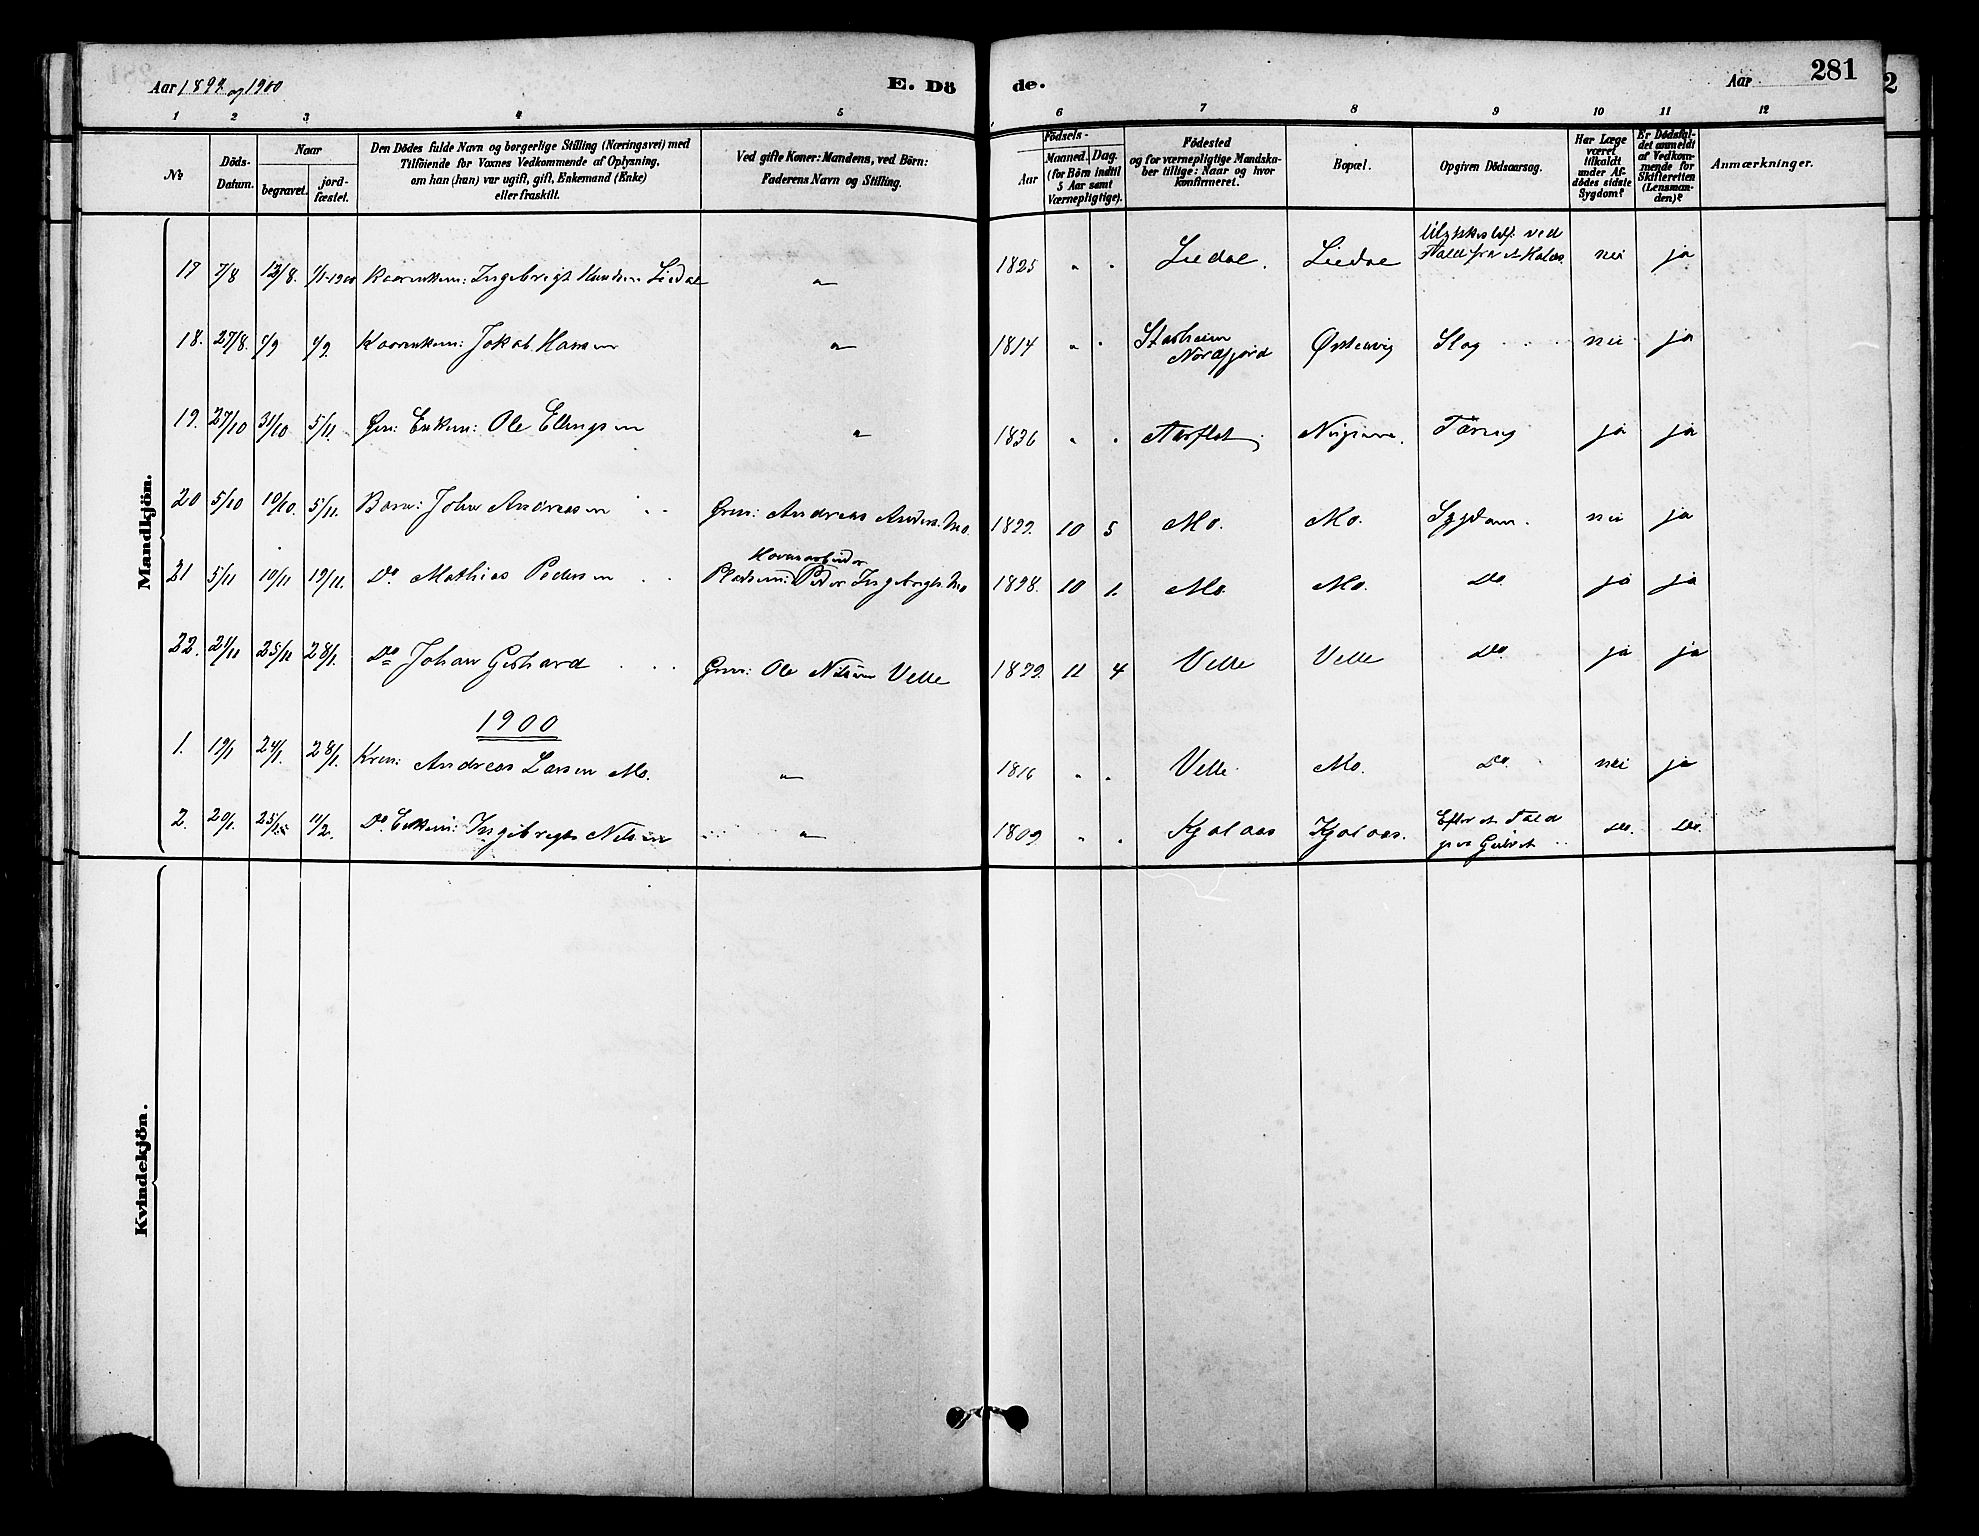 Aar 1899 og 1900
E. Dö
de.
Aar
281
2
1 2 3 4 5 6 7 8 9 10 11 12
No
Döds-
Datum.
Naar
begravet.
jord-
fæstet.
Den Dödes fulde Navn og borgerlige Stilling (Næringsvei) med
Tilföiende for Voxnes Vedkommende af Oplysning,
om han (hun) var ugift, gift, Enkemand (Enke)
eller fraskilt.
Ved gifte Koner: Mandens, ved Börn:
Faderens Navn og Stilling.
Födsels-
Aar
Maaned. Dag.
(for Börn indtil
5 Aar samt
Værnepligtige).
Födested
og for værnepligtige Mandska-
ber tillige: Naar og hvor
konfirmeret.
Bopæl.
Opgiven Dödsaarsag.
Har Læge
været
tilkaldt
under Af-
dödes sidste
Sygdom?
Er Dödsfal-
det anmeldt
af Vedkom-
mende for
Skifteretten
(Lensman-
den)?
Anmærkninger.
Mandkjön.
17 7/8 12/8. 1/1-1900 Kaarenkem: Ingebrigt Knudsen Liedal " 1825 " " Liedal. Liedal Ulykkestilf. ved
Fald fra et nei ja
18. 27/8. 1/9 1/9. Kaarenkem: Jakob Hansen " 1814 " " Starheim
Nordfjord Østenvig Slag nei ja
19. 27/10 31/10 5/11. Grm: Enkem: Ole Ellingsen " 1836 " " Aarflot Tæring ja ja
20 5/10 19/10. 5/11. Barn: John Andreasen Grm: Andreas Anders. Mo. 1899. 10 5 Mo. Mo. Sygdom. nei ja
21 5/11 10/11 19/11. Do Mathias Pedersen Havnearbeider
Pladsem: Peder Ingebrigts. Mo 1898. 10 1. Mo. Mo. Do. ja ja
22. 21/11 25/11 28/1. Do Johan Gerhard Grm: Ole Nilsen Velle 1899. 11 4 Velle Velle Do. ja ja
1900
1. 19/1 24/1. 28/1. Krm: Andreas Larsen Mo. " 1816 " " Velle Mo. Do. nei ja
2. 20/1. 25/1 11/2. Do. Enkem: Ingebrigt Nilsen " 1809 " " Kjolaas Kjolaas. Efter et Fald
paa Gulvet Do. Do.
Kvindekjön.